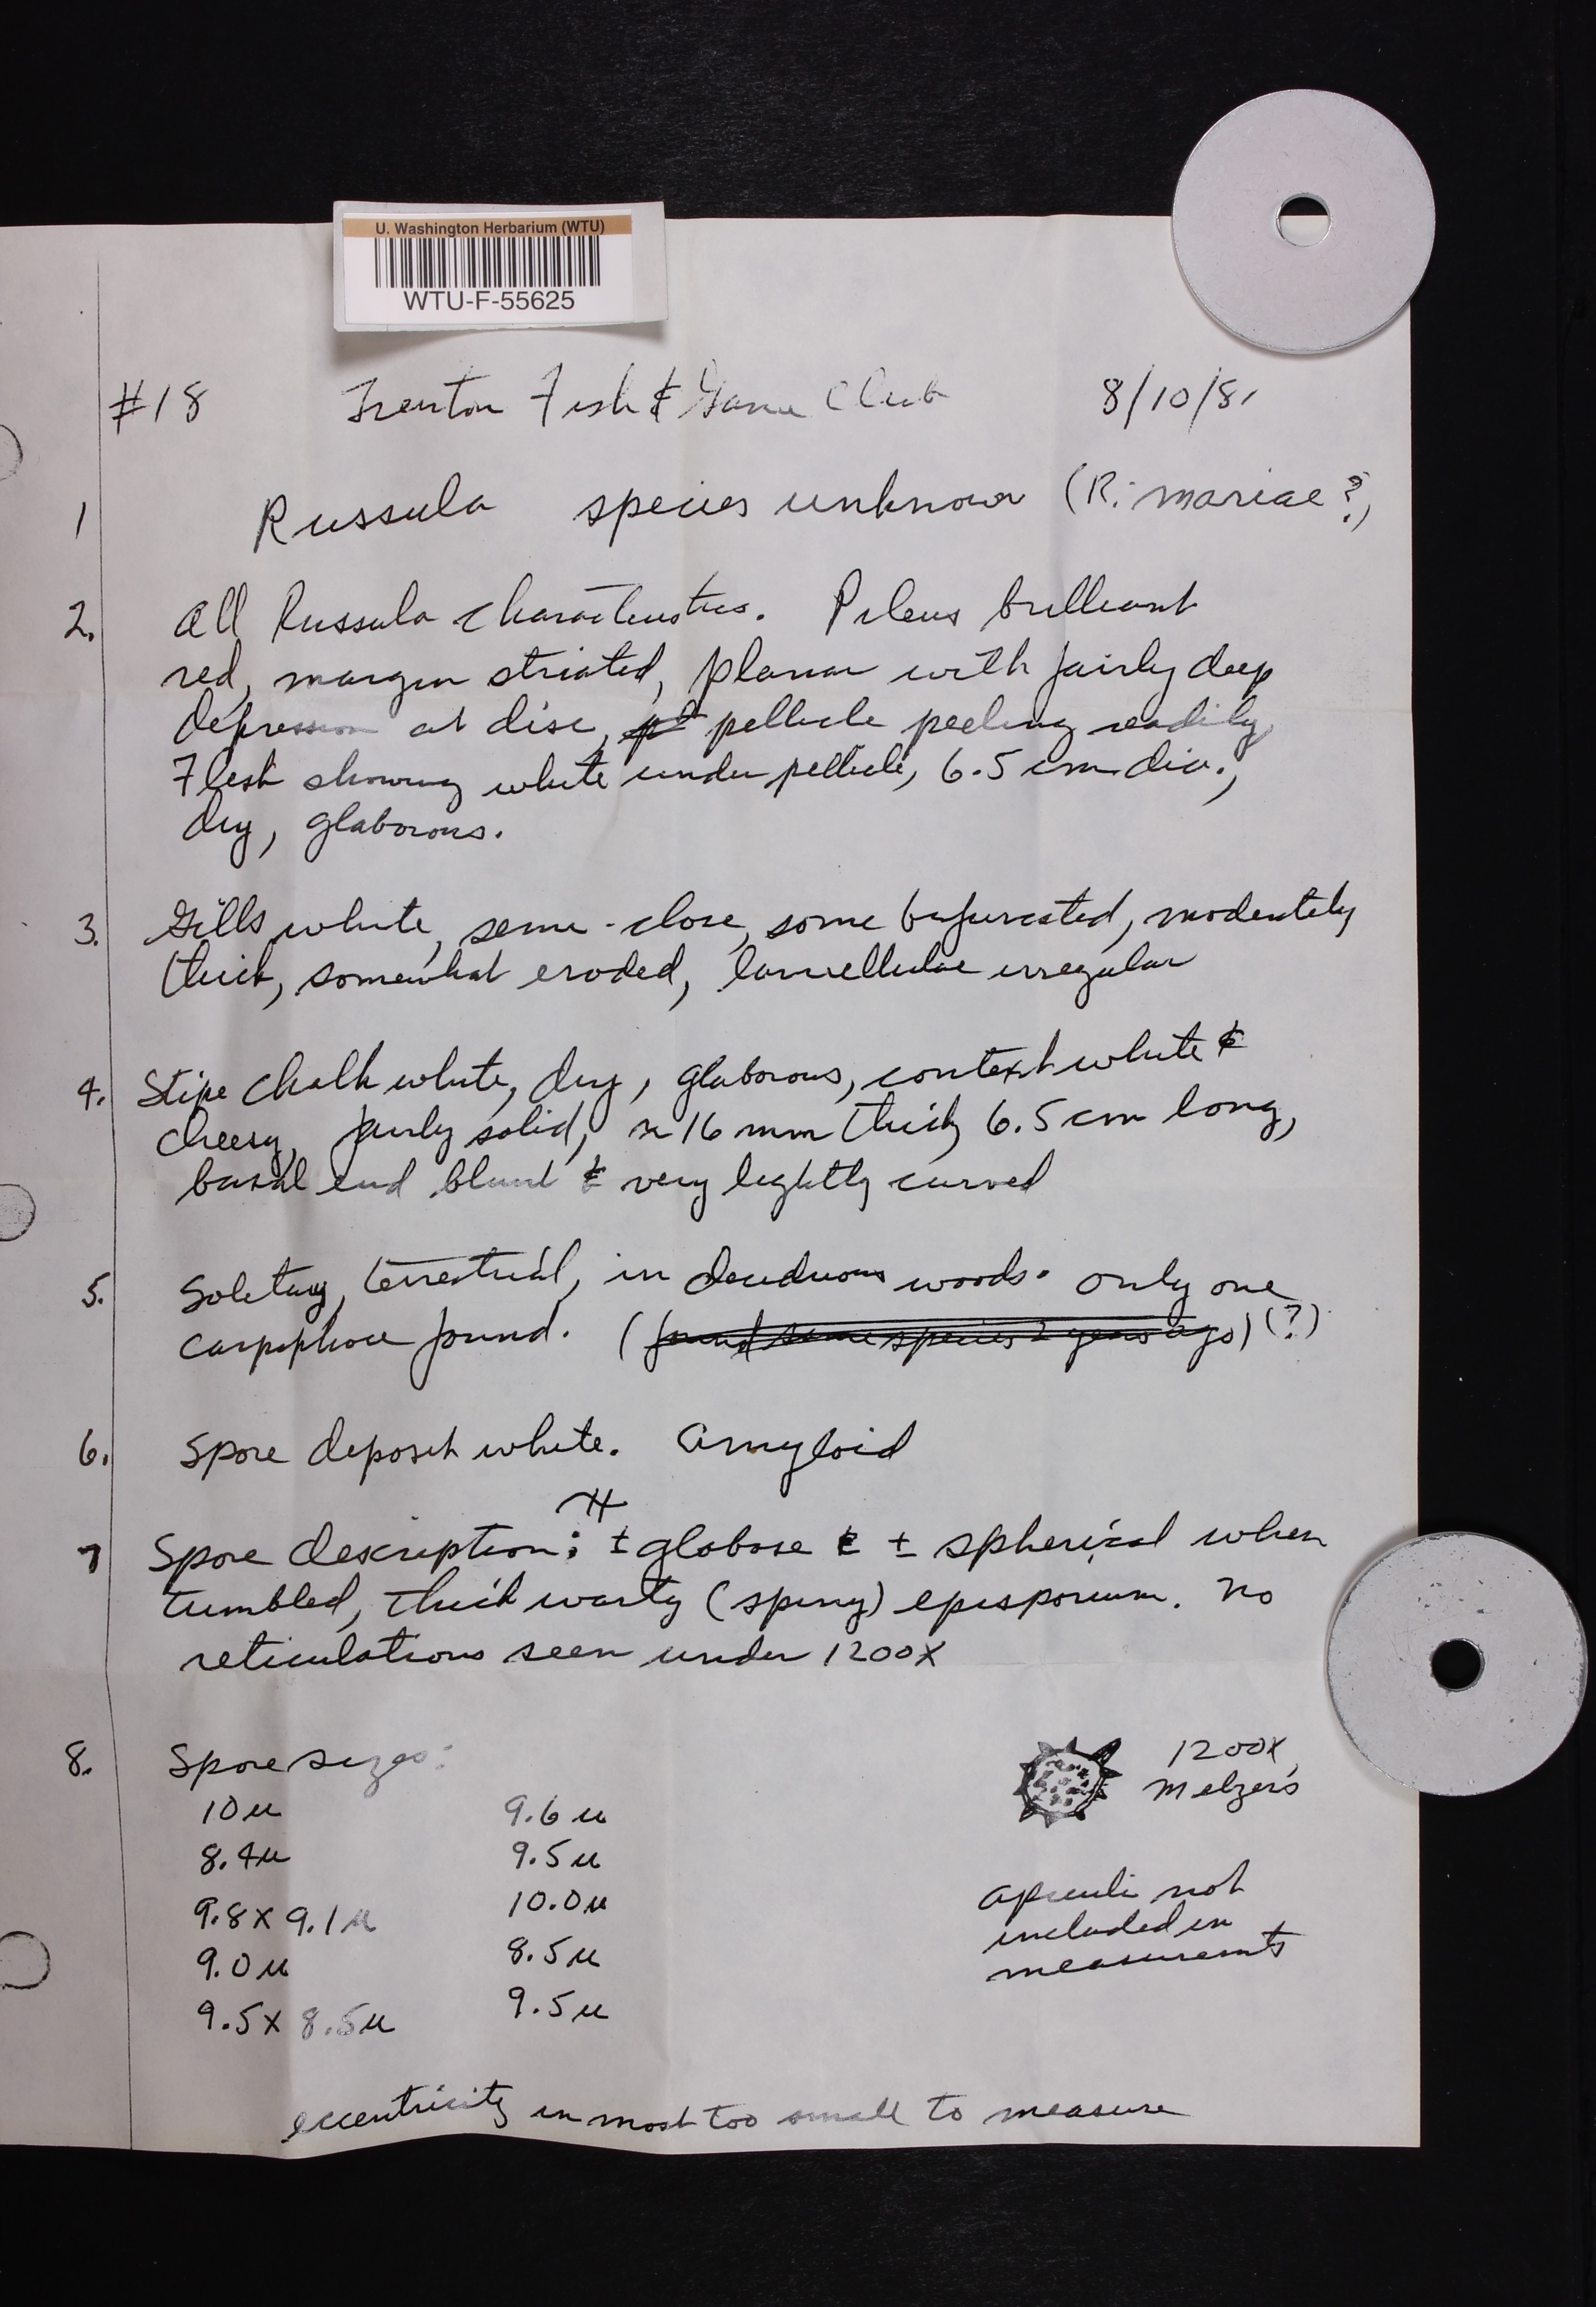 U. Washington Herbarium (WTU)
WTU-F-55625
#18 Trenton Fish & Game Club 8/10/81
1 Russula species unknown (R. mariae?)
2. All Russula characteristics. Pileus brilliant
red, margin striated, planar with fairly deep
depression at disc, pellicle peeling readily,
Flesh showing white under pellicle, 6.5 cm dia.,
dry, glaborous.
3. Gills white, semi-close, some bifurcated, moderately
thick, somewhat eroded, lamellulae irregular
4. Stipe chalk white, dry, glaborous, context white &
cheesy, fairly solid, ≈ 16 mm thick, 6.5 cm long,
basal end blunt & very lightly curved
5. Solitary, terrestrial, in deciduous woods. Only one
carpophore found. (found same species 2 years ago) (?)
6. Spore deposit white. Amyloid
7 Spore description: ± globose & ± spherical when
tumbled, thick warty (spiny) episporium. No
reticulations seen under 1200X
8. Spore sizes:
10 µ 9.6 µ
8.4 µ 9.5 µ
9.8 x 9.1 µ 10.0 µ
9.0 µ 8.5 µ
9.5 x 8.5 µ 9.5 µ
1200X,
Melzer's
apiculi not
included in
measuremts
eccentricity in most too small to measure